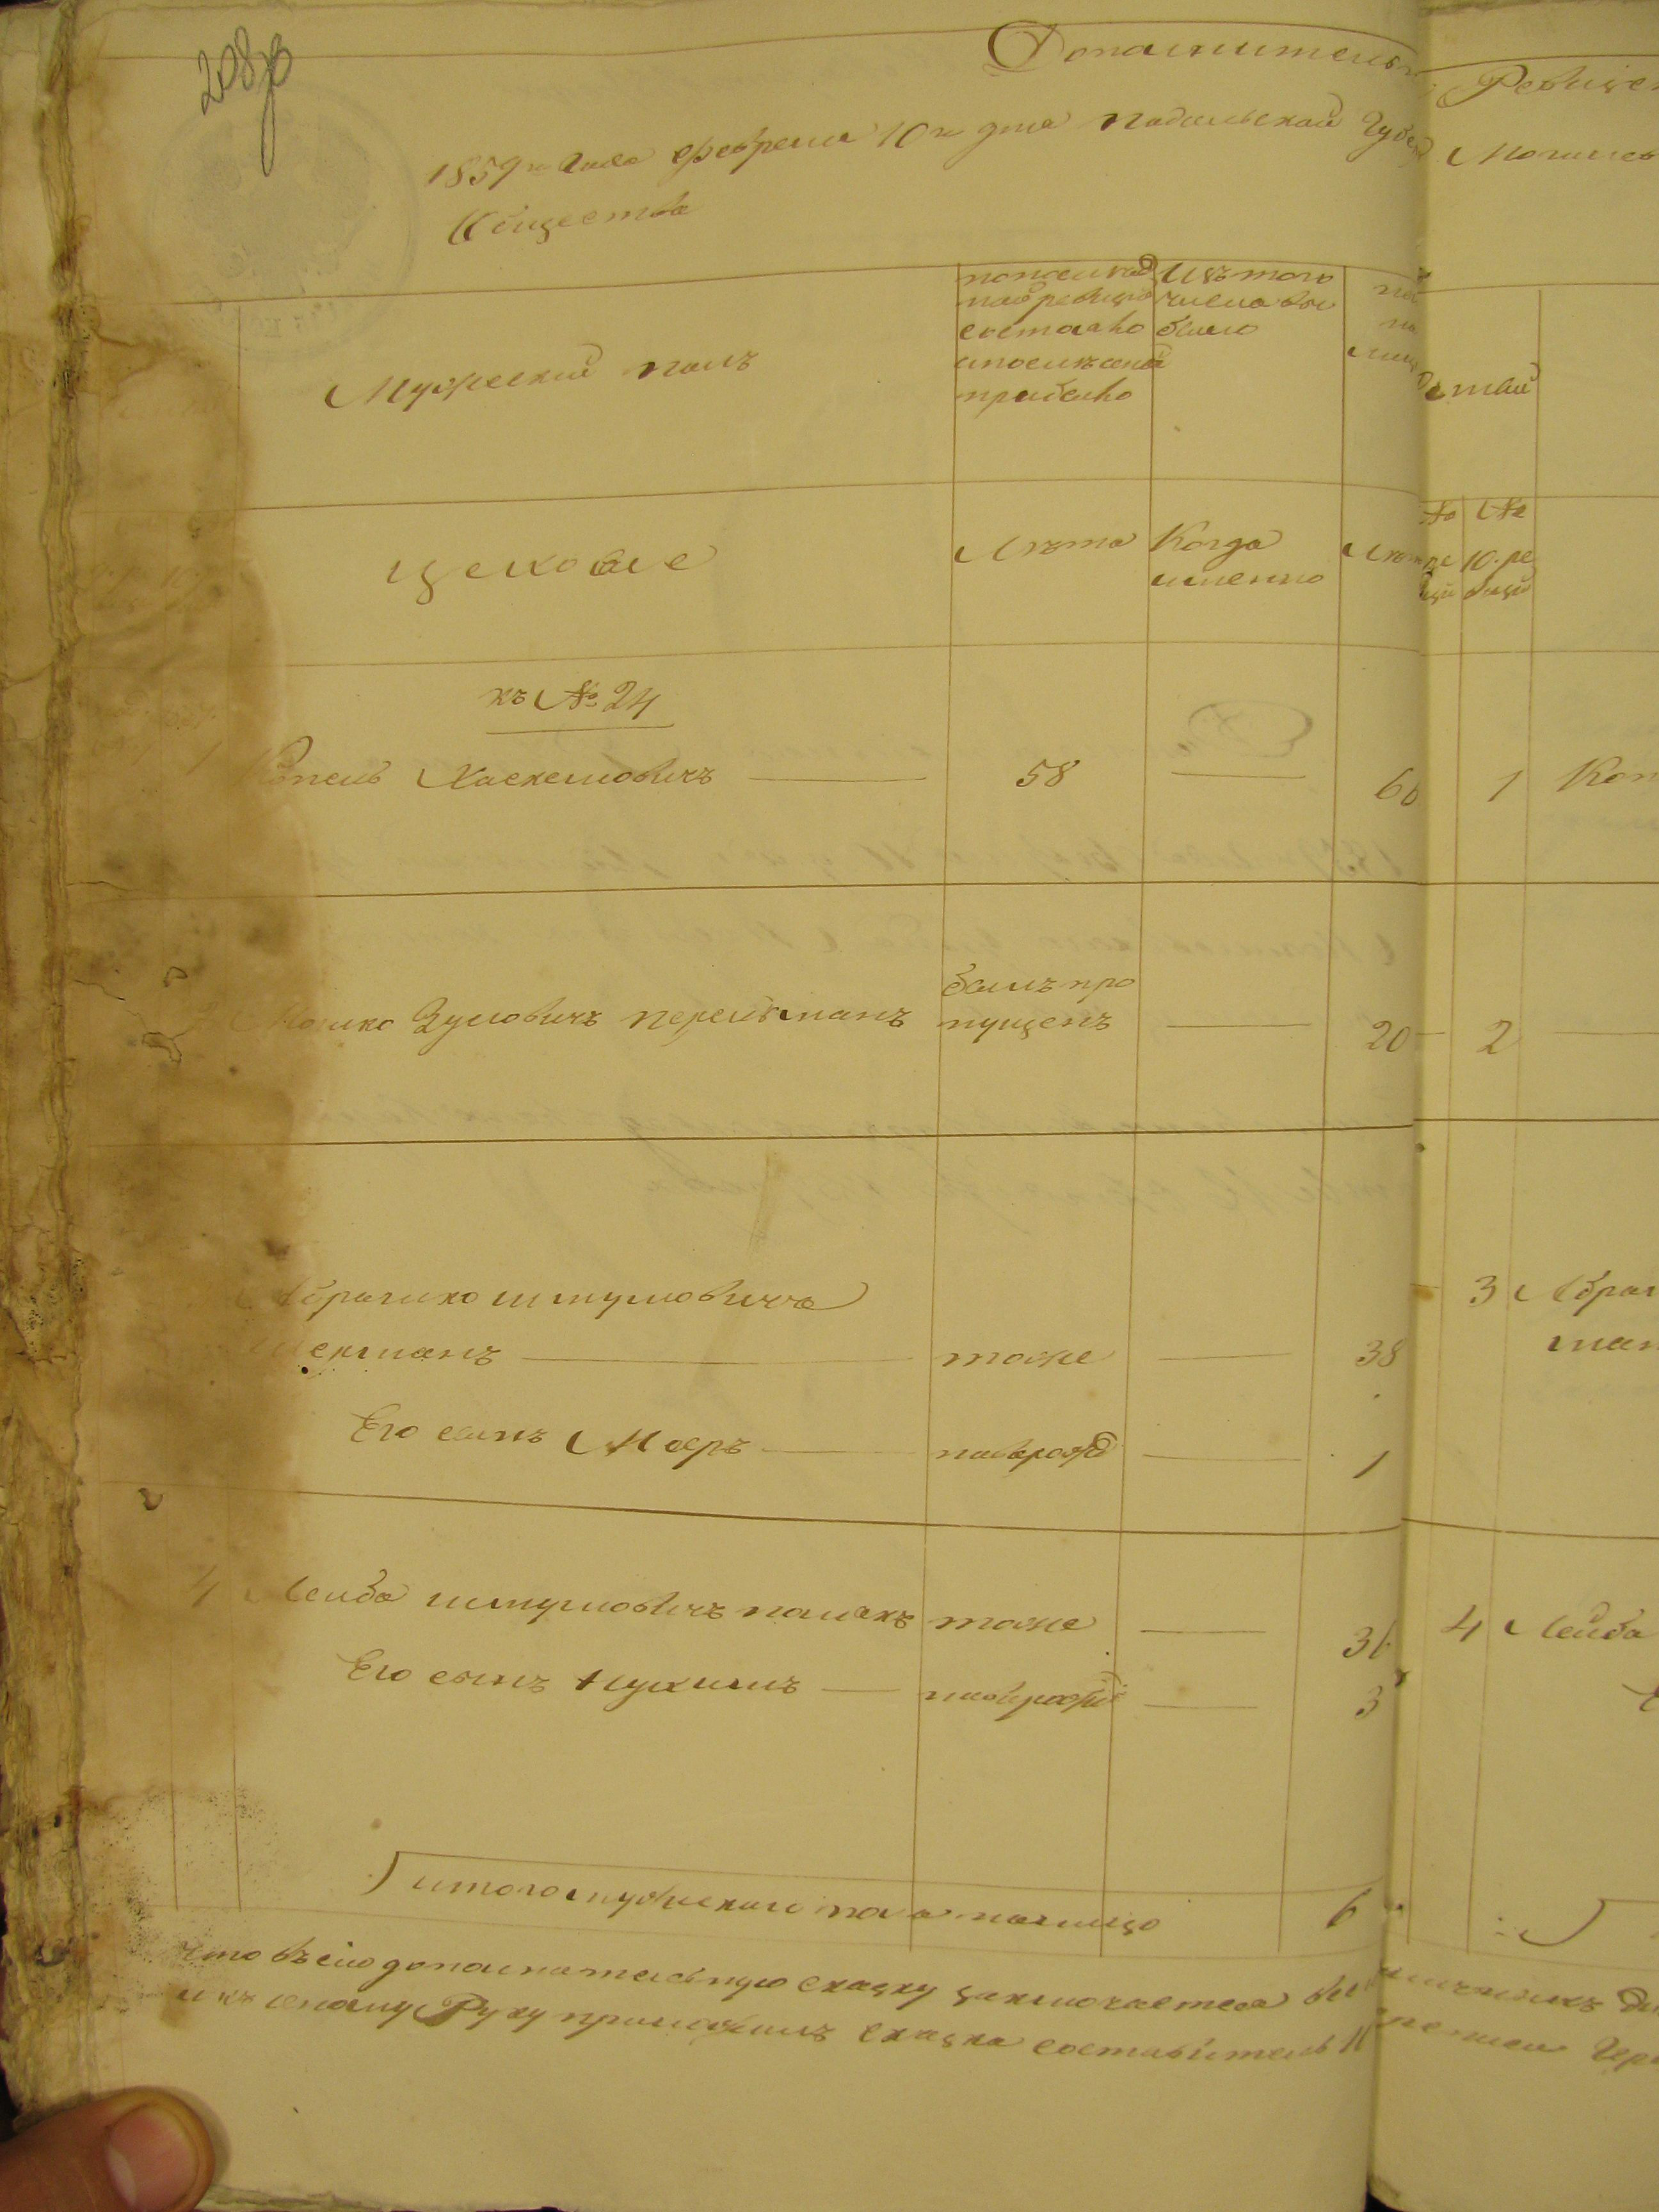 208
Дополнительн
Ревизс
1859го Года февраля 10го дня Подольской Губе
Могилев
Общества
Мужеский полъ
последней
ревизіи
состояло
и после оной
прибыло
Изъ того
числа вы
было
цеховые
Лѣта
Когда
именно
Лѣт
№
10. ре
визіи
къ № 24
Копель Хаскелювичъ 58 60
1 Коп
Мошко Зуловичъ перельманъ
былъ про
пущенъ
20
2
Абрамко шмуловичъ
38
тоже
3 Абрам
ман
Его сынъ Моеръ новорожд 1
4 Лейба шмуловичъ полякъ тоже 31
4 Лейба
Его сынъ Нухимъ новорожд 3
итого мужескаго пола налицо 6
что въ сію дополнительную сказку заключается
и къ оному Руку приложилъ сказка составитель